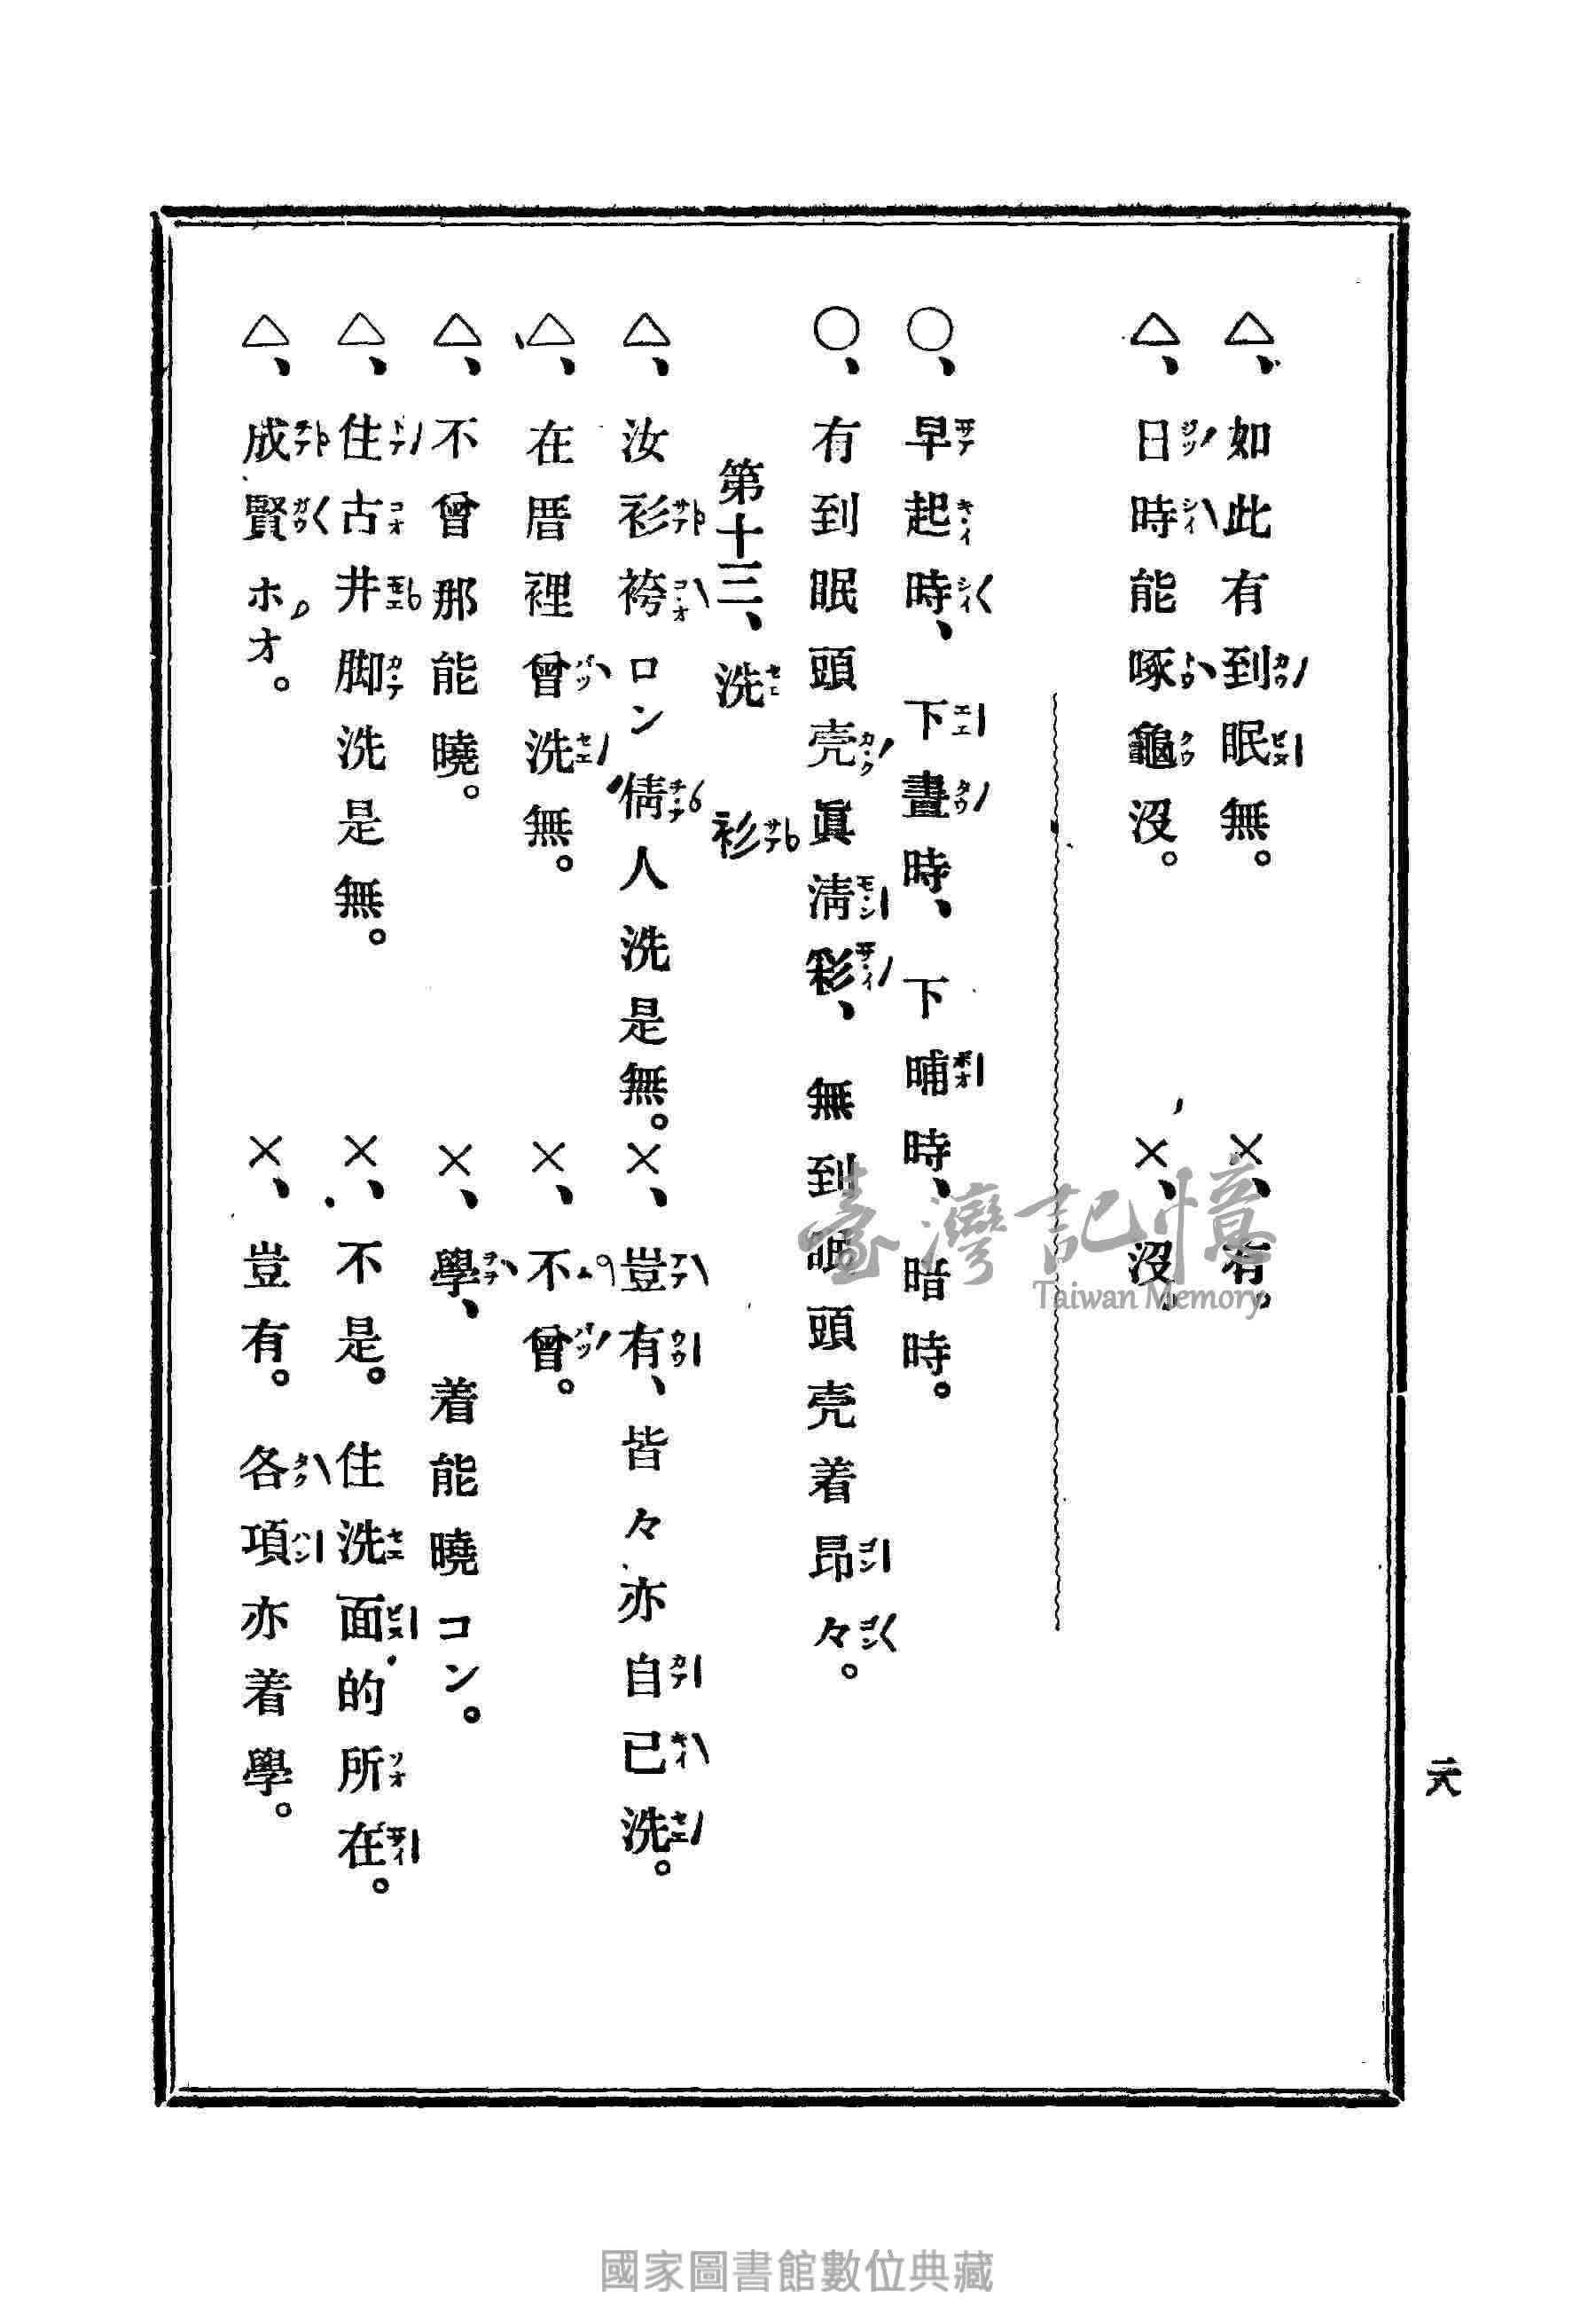 △、如此有到眠無。 ×、有。
△、日時能啄龜沒。 ×、沒。
○、早起時、下晝時、下晡時、暗時。
○、有到眠頭壳眞淸彩、無到眠頭壳着昂々。
第十三、洗衫
△、汝衫袴ロン倩人洗是無。 ×、豈有、皆々亦自已洗。
△、在厝裡曾洗無。 ×、不曾。
△、不曾那能曉。 ×、學、着能曉コン。
△、住古井脚洗是無。 ×、不是。住洗面的所在。
△、成賢ホオ。 ×、豈有。各項亦着學。
二八
臺灣記憶
Taiwan Memory
國家圖書館數位典藏